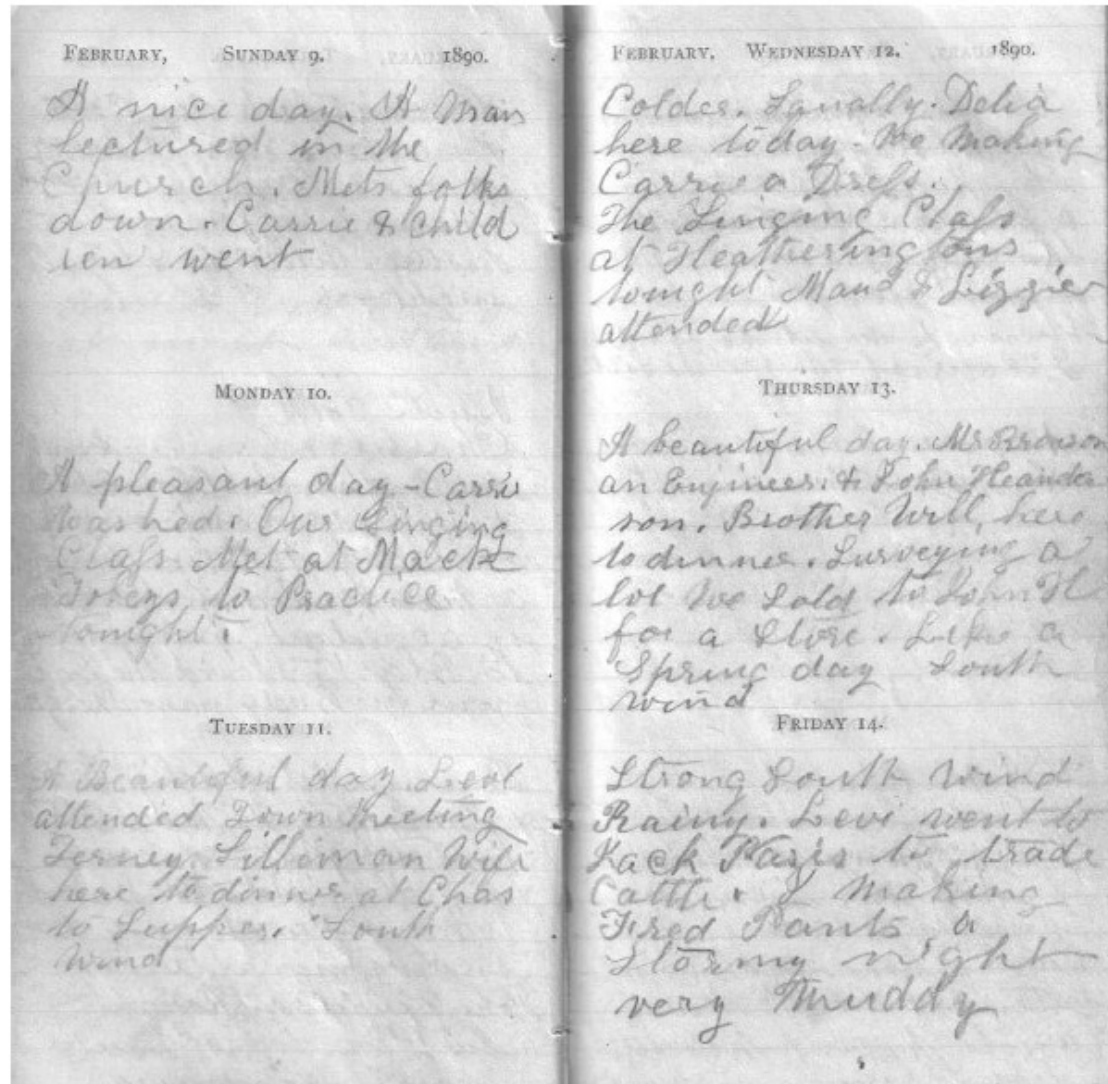 FEBRUARY, SUNDAY 9. 1890.
A nice day. A Man
Lectured in the
Church. Mets folks
down. Carrie & Child
ren went
MONDAY 10.
A pleasant day - Carrie
Washed. Our Singing
Class Met at Mack
Tobeys to Practice
tonight.
TUESDAY 11.
A Beautiful day Levi
attended Town Meeting
Silliman Will
here to dinner at Chas
to Supper. South
Wind
FEBRUARY. WEDNESDAY 12. 1890.
Colder. Delia
here today. We Making
Carrie a Dress.
The Singing Class
at Heatheringtons
tonight Maud & Lizzie
attended
THURSDAY 13.
A beautiful day. Mr Bronson
an Engineer. & John Heander
son. Brother Will, here
to dinner. Surveying a
lot We Sold to John H
for a Store. Like a
Spring day South
wind
FRIDAY 14.
Strong South Wind
Rainy. Levi went to
to trade
Cattle. I Making
Fred Pants a
Stormy night
very Muddy